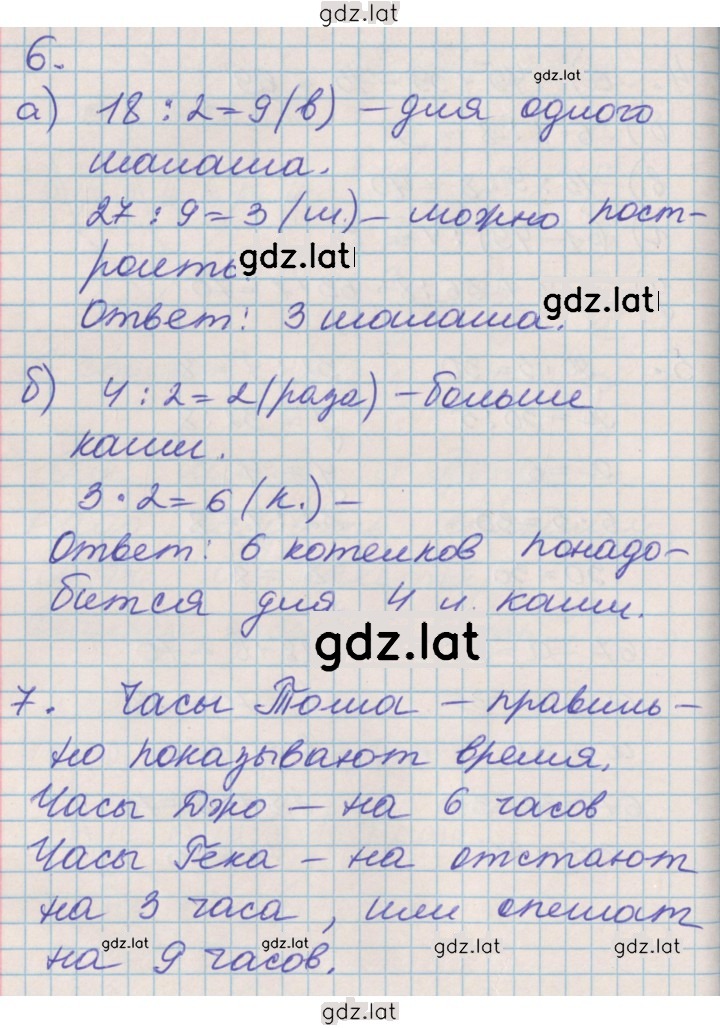 gdz.lat
6.
gdz.lat
а) 18 : 2 = 9 (в) – для одного
шалаша.
27 : 9 = 3 (ш.) – можно пост-
роить. gdz.lat
gdz.lat
Ответ: 3 шалаша.
б) 4 : 2 = 2 (раза) – больше
каши.
3 · 2 = 6 (к.) –
Ответ: 6 котелков понадо-
бится для 4 л. каши.
gdz.lat
7. Часы Тома – правиль-
но показывают время.
Часы Джо – на 6 часов
Часы Гека – на отстают
на 3 часа, или спешат
gdz.lat gdz.lat gdz.lat gdz.lat
на 9 часов.
gdz.lat